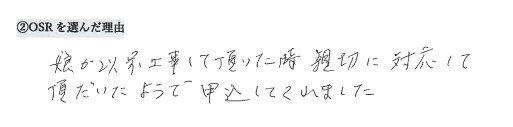 ②OSRを選んだ理由
娘が以前工事して頂いた時 親切に 対応して
頂だいたようで 申込してくれました